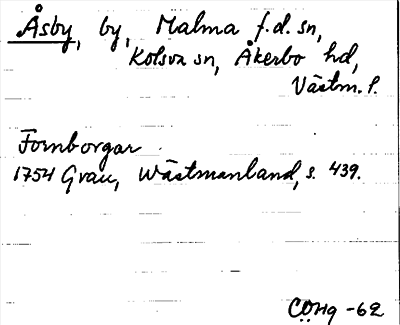 Åsby, by, Malma f.d. sn,
Kolsva sn, Åkerbo hd,
Västm. l.
Fornborgar
1754 Grau, Wästmanland, s. 439.
CÖHg -62